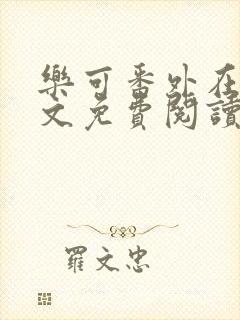 樂可番外在
文免費閱讀
羅文忠